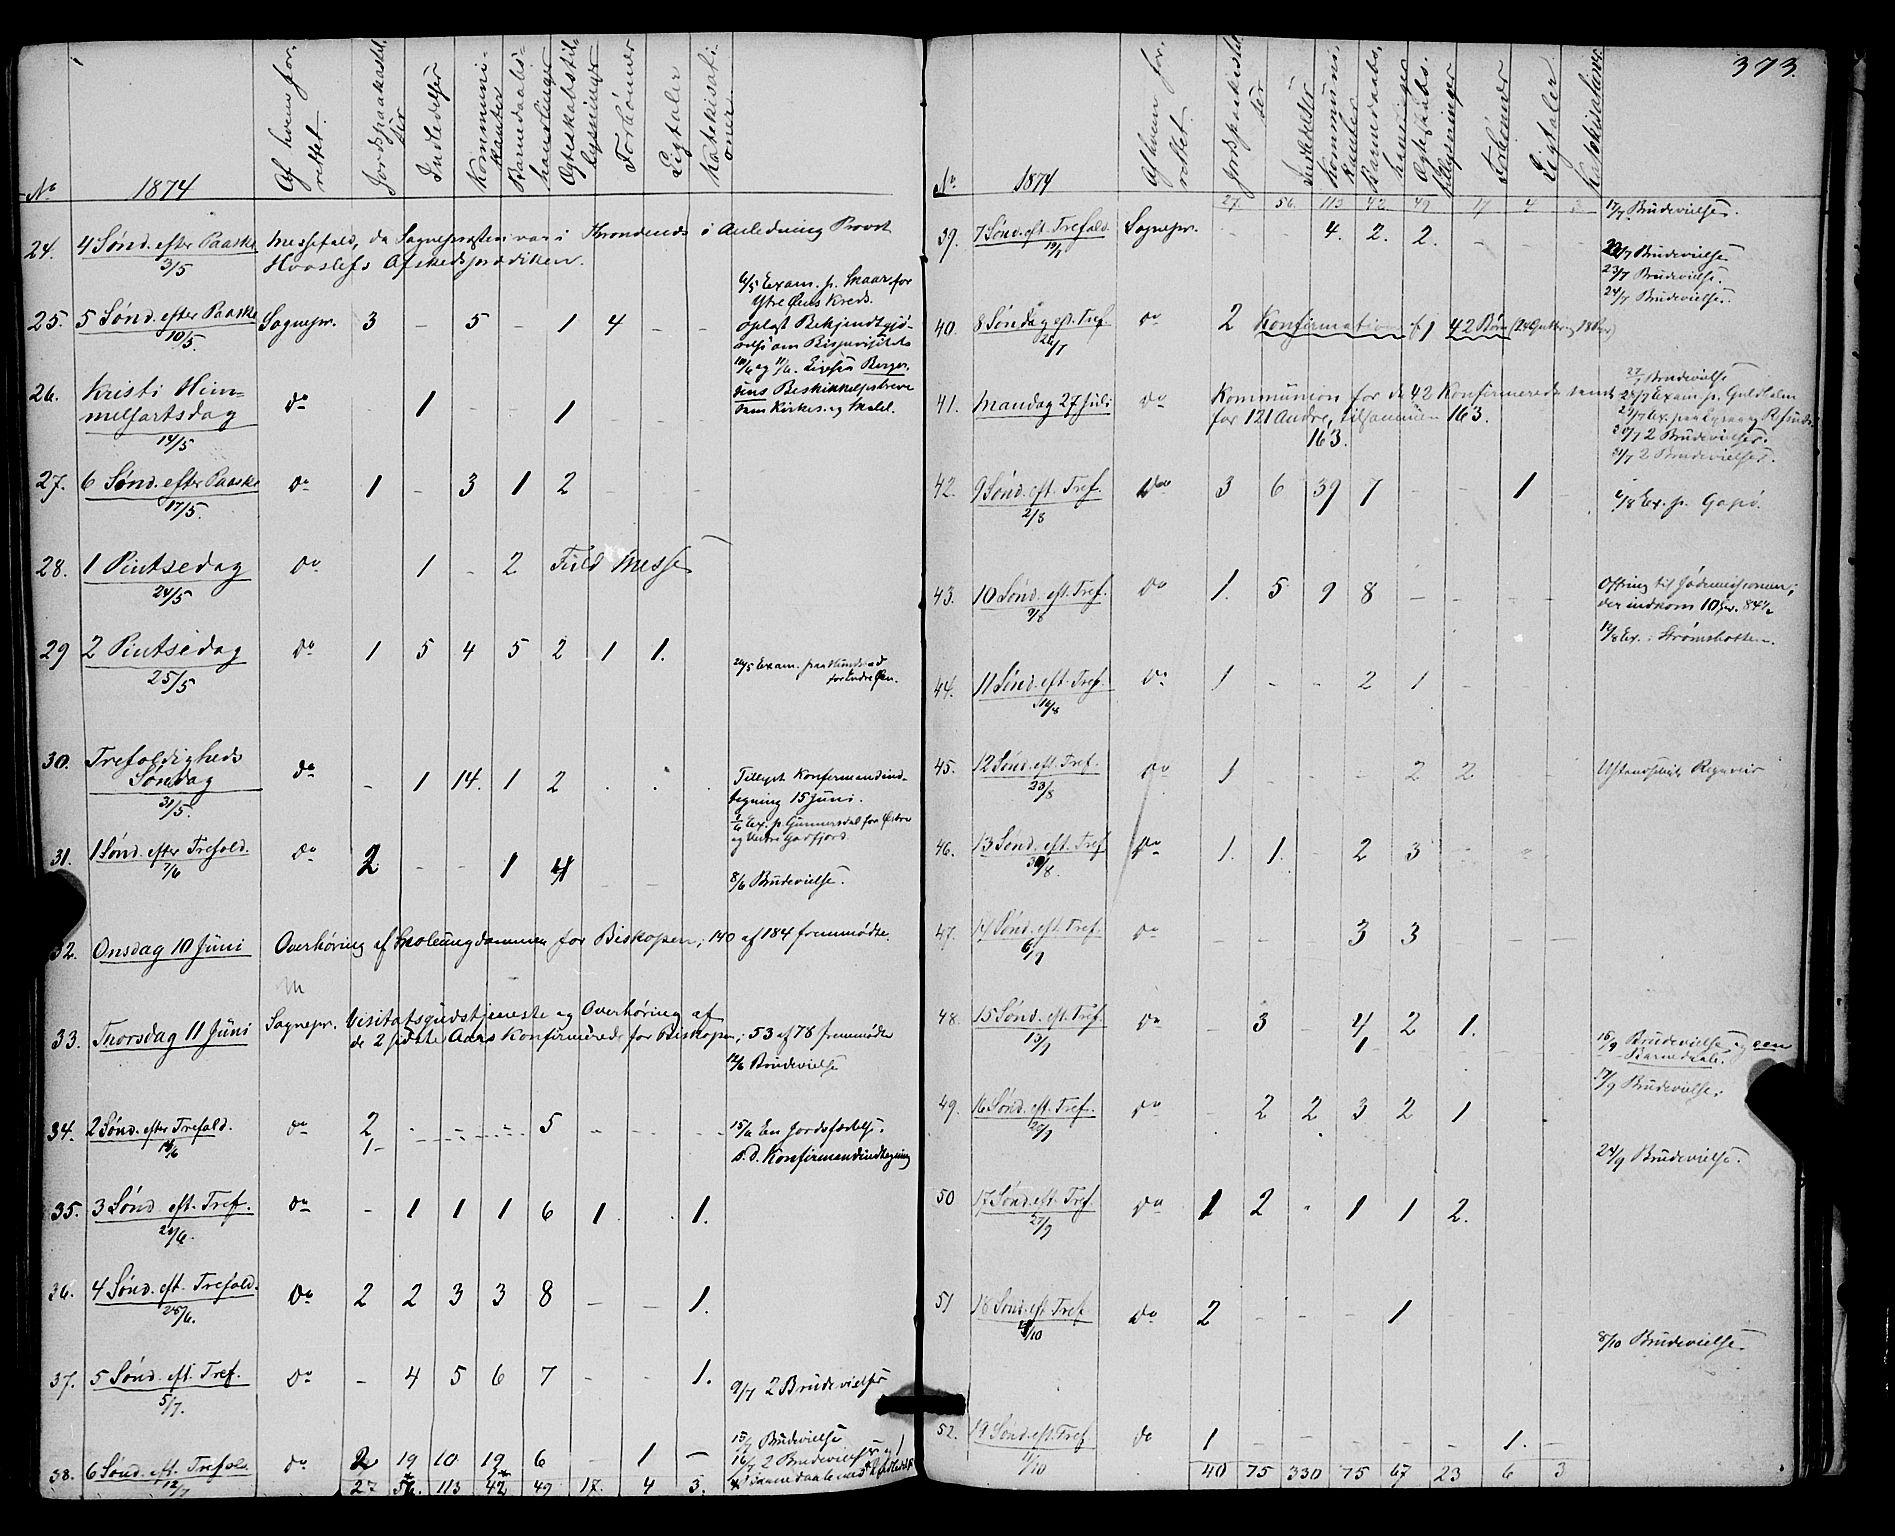 No 1874 Af hvem for-
rettet.
Jordspaakastel-
ser
Indledelser
Kommuni-
kanter
Barnedaabs-
handlinger
Ægteskabstil-
lysninger
Forbønner
Ligtaler
Katekisati-
oner
24. 4 Sønd. efter Paaske Messefald, da Sognepresten var i Throndenes i Anledning Provst
3/5 Hvoslefs Afskedsprædiken.
6/5 Exam. p.
Ytre Øens Kreds.
25. 5 Sønd. efter Paaske Sognepr. 3 - 5 - 1 4 - -
10/5.
Oplæst Bekjendtgjø-
relse om Bispevisitats
10/6 og 11/6.
26. Kristi Him-
melfartsdag do 1 - - 1
14/5
Beskikkelsesbreve
som Kirkes. og
27. 6 Sønd. efter Paaske do 1 - 3 1 2 - - -
17/5.
28. 1 Pintsedag do 1 - 2 Fuld Messe
24/5
29 2 Pintsedag do 1 5 4 5 2 1 1.
25/5
26/5 Exam. paa
for Indre Øen.
30. Trefoldigheds
Søndag do - 1 14. 1 2 . . .
31/5.
Tillyst Konfirmandind-
tegning 15 Juni.
Ex. p. Gunnersdal for Østre
og Vestre Godfjord.
31. 1 Sønd. efter Trefold. do 2 - - 1 4 - -
7/6
8/6 Brudevielse.
32. Onsdag 10 Juni Overhøring af Skoleungdommen for Biskopen; 140 af 184 fremmødte.
33. Thorsdag 11 Juni Sognepr. Visitatsgudstjeneste og Overhøring af
de 2 sidste Aars Konfirmerede for Biskopen; 53 af 78 fremmødte
12/6 Brudevielse
34. 2 Sønd. efter Trefold. do 2 - - - 5 - - -
14/6 1 -
15/6 En Jordsfæstelse.
s. D. Konfirmandindtegning
35. 3 Sønd. eft. Tref. do - 1 1 1 6 1 . 1.
21/6.
36. 4 Sønd. eft. Trefold. do 2 2 3 3 8 - - 1.
28/6.
37. 5 Sønd. eft. Tref. do - 4 5 6 7 - - 1.
5/7.
9/7 2 Brudevielser
15/7 Brudevielse
16/7 2 Brudevielser og 1
38. 6 Sønd. eft. Trefold. do 2 19 10 19 6 - 1 -
12/7
27 56. 113 42 49 17. 4 3.
373.
No 1874 Af hvem for-
rettet
Jordspaakastel-
ser
Indledelser
Kommuni-
kanter
Barnedaabs-
handlinger
Ægteskabs-
tillysninger
Forbønner
Ligtaler
Katekisationer
27. 56. 113 42 49 17 4 3
17/7 Brudevielse.
39. 7 Sønd. eft. Trefold. Sognepr. 4. 2. 2. - - -
19/7
22/7 Brudevielse
23/7 Brudevielse.
24/7 Brudevielse.
40. 8 Søndag eft. Tref. do 2 Konfirmation af 42 Børn
26/7
27/7 Brudevielse
41. Mandag 27 Juli do Kommunion for de 42 Konfirmerede samt
for 121 Andre, tilsammen 163.
163.
2 Brudevielser.
31/7 2 Brudevielser.
42. 9 Sønd. eft. Tref. do 3 6 39 7 - - 1 -
2/8
6/8 Ex. p. Gapø.
43. 10 Sønd. eft. Tref. do 1. 5 9 8 - - - -
9/8
Offring til Jødemissionen,
der indkom
Ex. i Strømsbotten.
44. 11 Sønd. eft. Tref. do 1 - - 2 1 - -
16/8
45. 12 Sønd. eft. Tref. do 1 - - - 2 2 -
23/8
Ustandseligt Regnveir
46. 13 Sønd. eft. Tref do 1. 1. - 2 3 - -
30/8.
47. 14 Sønd. eft. Tref. do - - - 3 3 - -
6/9
48. 15 Sønd. eft. Tref do - 3 - 4 2 1.
13/9 1
16/9 Brudevielse og een
Barnedaab.
17/9 Brudevielse.
49. 16 Sønd. eft. Tref. do - 2 2 3 2 1
20/9
24/9 Brudevielse.
50 17 Sønd. eft. Tref do 1 2 - 1 1 2.
27/9
51 18 Sønd. eft. Tref do 2 - - - 1
4/10
8/10 Brudevielse.
52. 19 Sønd. eft. Tref do 1 - - - - - 1. -
11/10
40 75 330 75 67 23 6 3